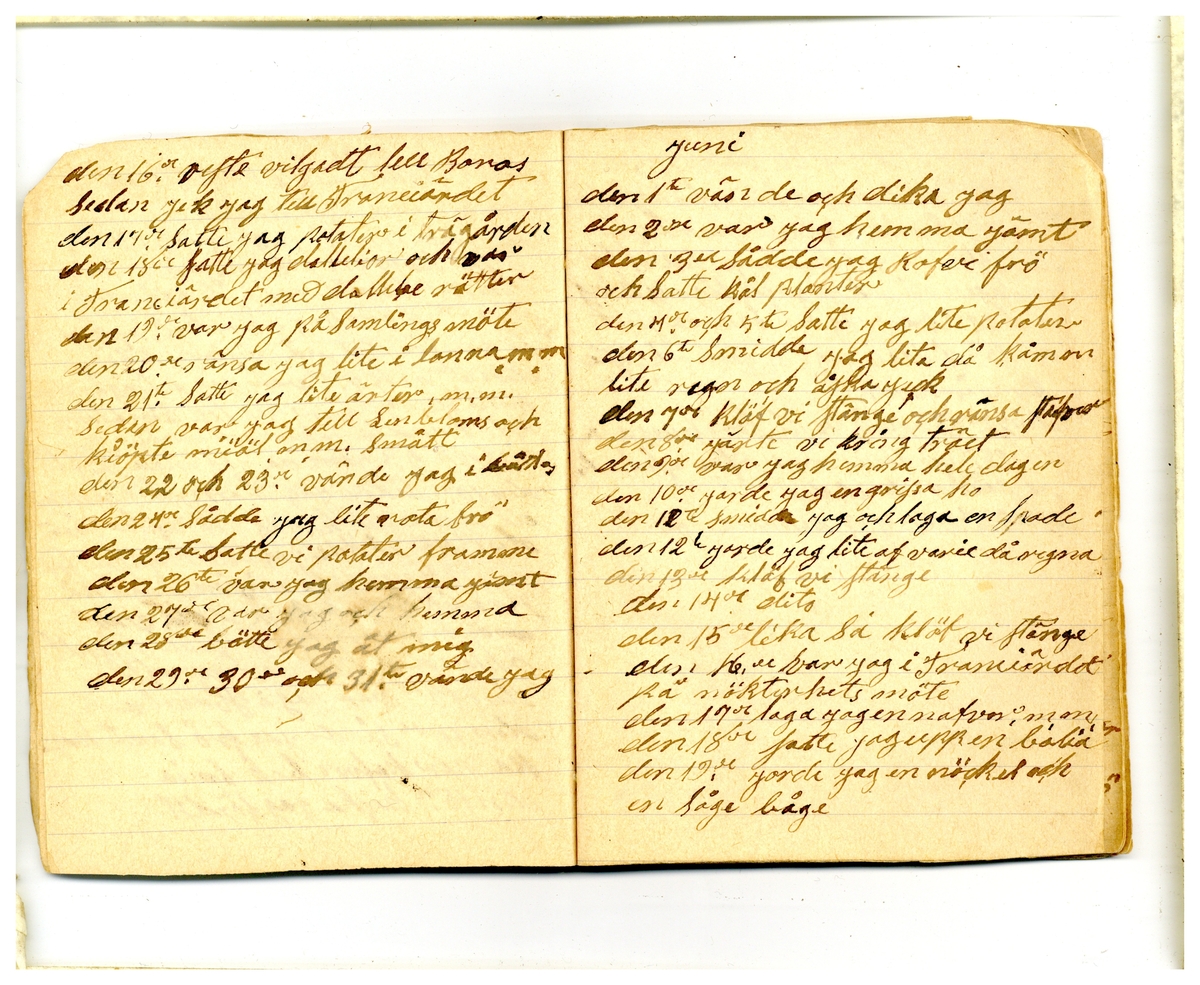 den 16de vefte vilgadt till Boras
Sedan jek jag till Franciärdet
den 17de Satte jag potater i trägården
den 18de Satte jag dallelior och var
i Franciärdet med dallelie rötter
den 19de var jag på Samlings möte
den 20de ränsa jag lite i lanna m m
den 21te Satte jag lite ärter, m.m.
Sedan var jag till Lenbloms och
kiöpte miöl m.m. Smått
den 22 och 23de vände jag i
den 24de Sådde jag lite rota frö
den 25te Satte vi potater framme
den 26te var jag hemma jämt
den 27de var jag och hemma
den 28de bötte jag åt mig
den 29de 30de och 31te vände jag
juni
den 1te vände och dika jag
den 2de var jag hemma jämt
den 3de Sådde jag Rofvi frö
och Satte kål planter
den 4de och 5te Satte jag lite potater
den 6te Smidde jag lita då kåm on
lite regn och åska jeck
den 7de klöf vi stänge och ränsa stafver
den 8de gärte vi kring träet
den 9de var jag hemma hele dagen
den 10de gorde jag en grissa ho
den 12te Smidde jag och laga en Spade
den 12te gorde jag lite af varie då regna
den 13de klöf vi stänge
den 14de dito
den 15de lika Så klöf vi stänge
den 16de var jag i Franciärdet
på nökterhets möte
den 17de laga jag en nafvar, m m,
den 18de Satte jag upp en balia
den 19de gorde jag en nöckel och
en Såge båge